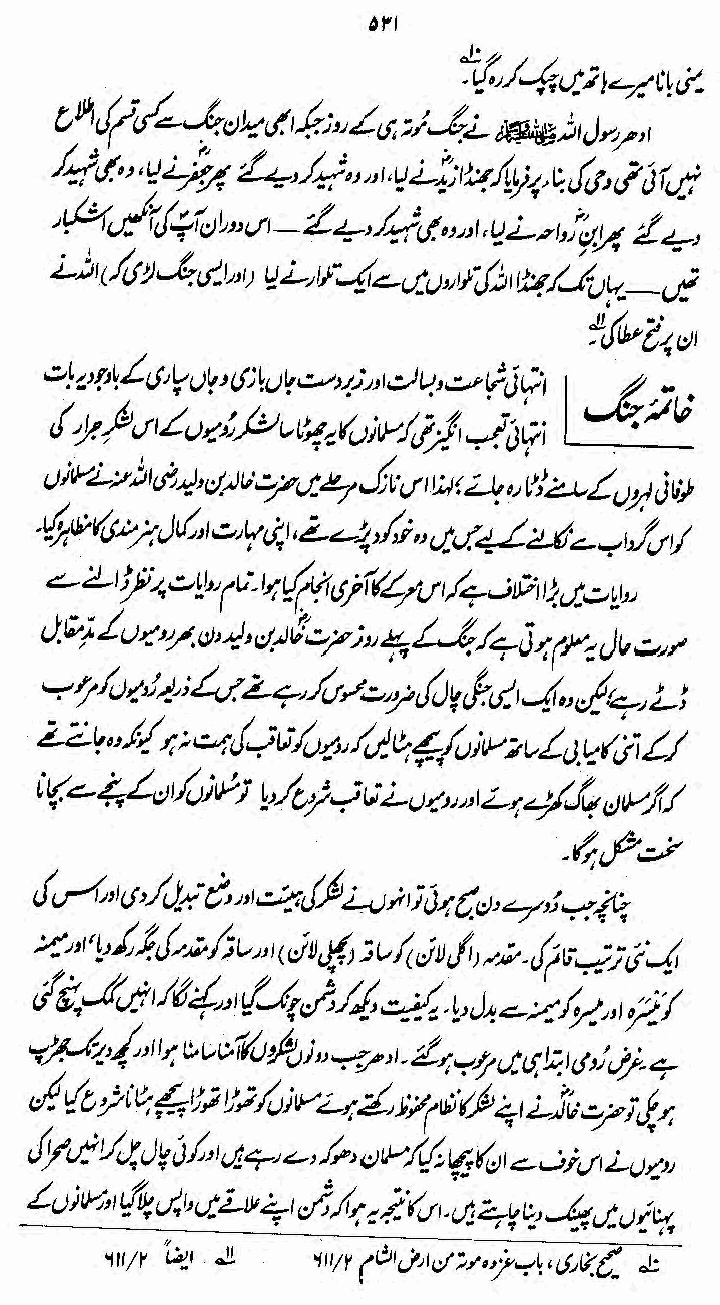 ۵۳۱
یمنی بانا میرے ہاتھ میں چپک کر رہ گیا۔ ۱۰؎
ادھر رسول اللہ ﷺ نے جنگ مُوتہ ہی کے روز جبکہ ابھی میدان جنگ سے کسی قسم کی اطلاع
نہیں آئی تھی وحی کی بناء پر فرمایا کہ جھنڈا زیدؓ نے لیا، اور وہ شہید کر دیے گئے پھر جعفرؓ نے لیا، وہ بھی شہید کر
دیے گئے پھر ابنِ رواحہؓ نے لیا، اور وہ بھی شہید کر دیے گئے — اس دوران آپؐ کی آنکھیں اشکبار
تھیں — یہاں تک کہ جھنڈا اللہ کی تلواروں میں سے ایک تلوار نے لیا (اور ایسی جنگ لڑی کہ) اللہ نے
ان پر فتح عطا کی۔ ۱۱؎
خاتمۂ جنگ
انتہائی شجاعت و بسالت اور زبردست جاں بازی و جاں سپاری کے باوجود یہ بات
انتہائی تعجب انگیز تھی کہ مسلمانوں کا یہ چھوٹا سا لشکر رُومیوں کے اس لشکرِ جرار کی
طوفانی لہروں کے سامنے ڈٹا رہ جائے؛ لہٰذا اس نازک مرحلے میں حضرت خالد بن ولید رضی اللہ عنہ نے مسلمانوں
کو اس گرداب سے نکالنے کے لیے جس میں وہ خود کود پڑے تھے، اپنی مہارت اور کمال ہنرمندی کا مظاہرہ کیا۔
روایات میں بڑا اختلاف ہے کہ اس معرکے کا آخری انجام کیا ہوا۔ تمام روایات پر نظر ڈالنے سے
صورت حال یہ معلوم ہوتی ہے کہ جنگ کے پہلے روز حضرت خالدؓ بن ولید دن بھر رومیوں کے مدِّ مقابل
ڈٹے رہے؛ لیکن وہ ایک ایسی جنگی چال کی ضرورت محسوس کر رہے تھے جس کے ذریعہ رُومیوں کو مرعوب
کر کے اتنی کامیابی کے ساتھ مسلمانوں کو پیچھے ہٹا لیں کہ رومیوں کو تعاقب کی ہمت نہ ہو کیونکہ وہ جانتے تھے
کہ اگر مسلمان بھاگ کھڑے ہوئے اور رومیوں نے تعاقب شروع کر دیا تو مُسلمانوں کو ان کے پنجے سے بچانا
سخت مشکل ہوگا۔
چنانچہ جب دُوسرے دن صبح ہوئی تو انہوں نے لشکر کی ہیئت اور وضع تبدیل کر دی اور اس کی
ایک نئی ترتیب قائم کی۔ مقدمہ (اگلی لائن) کو ساقہ (پچھلی لائن) اور ساقہ کو مقدمہ کی جگہ رکھ دیا، اور میمنہ
کو مَیْسَرَہ اور میسرہ کو میمنہ سے بدل دیا۔ یہ کیفیت دیکھ کر دشمن چونک گیا اور کہنے لگا کہ انہیں کمک پہنچ گئی
ہے۔ غرض رُومی ابتدا ہی میں مرعوب ہو گئے۔ ادھر جب دونوں لشکروں کا آمنا سامنا ہوا اور کچھ دیر تک جھڑپ
ہو چکی تو حضرت خالدؓ نے اپنے لشکر کا نظام محفوظ رکھتے ہوئے مسلمانوں کو تھوڑا تھوڑا پیچھے ہٹانا شروع کیا لیکن
رومیوں نے اس خوف سے ان کا پیچھا نہ کیا کہ مسلمان دھوکہ دے رہے ہیں اور کوئی چال چل کر انہیں صحرا کی
پہنائیوں میں پھینک دینا چاہتے ہیں۔ اس کا نتیجہ یہ ہوا کہ دشمن اپنے علاقے میں واپس چلا گیا اور مسلمانوں کے
۱۰؎ صحیح بخاری، باب غزوہ موتہ من ارض الشام ۶۱۱/۲ ۱۱؎ ایضاً ۶۱۱/۲